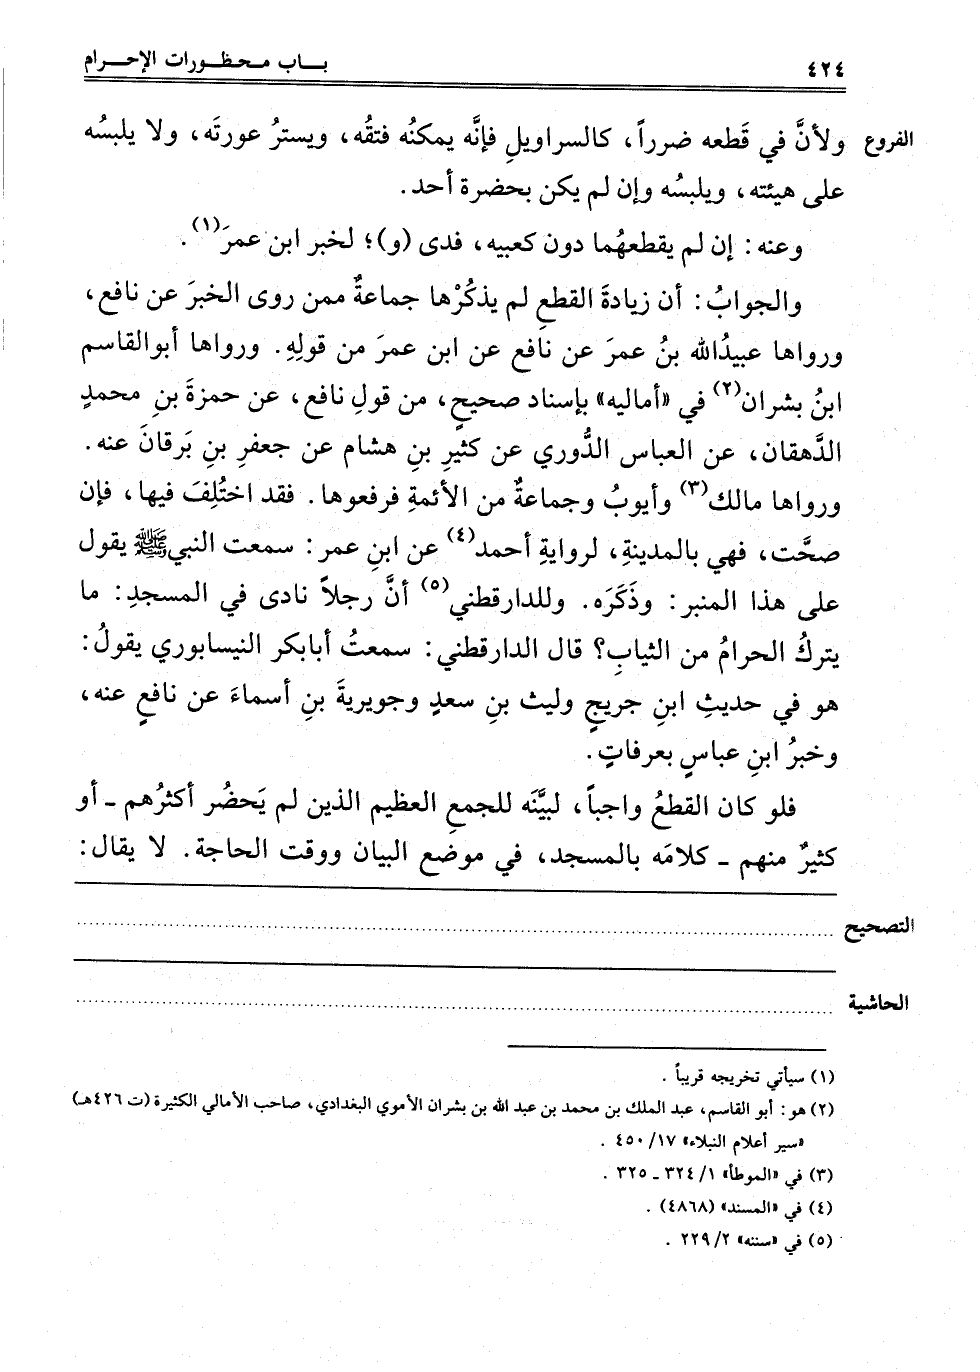 ٤٢٤ بــاب محـظـورات الإحـــرام
الفروع ولأنَّ في قَطعه ضرراً، كالسراويلِ فإنَّه يمكنُه فتقُه، ويسترُ عورتَه، ولا يلبسُه
على هيئته، ويلبسُه وإن لم يكن بحضرة أحد.
وعنه: إن لم يقطعهُما دون كعبيه، فدى (و)؛ لخبر ابن عمرَ(١).
والجوابُ: أن زيادةَ القطعِ لم يذكُرْها جماعةٌ ممن روى الخبرَ عن نافع،
ورواها عبيدُالله بنُ عمرَ عن نافع عن ابن عمرَ من قولِهِ. ورواها أبوالقاسم
ابنُ بشران(٢) في «أماليه» بإسناد صحيحٍ، من قولِ نافع، عن حمزةَ بنِ محمدٍ
الدَّهقان، عن العباس الدُّوري عن كثيرِ بنِ هشام عن جعفرِ بنِ بَرقانَ عنه.
ورواها مالك(٣) وأيوبُ وجماعةٌ من الأئمةِ فرفعوها. فقد اختُلِفَ فيها، فإن
صحَّت، فهي بالمدينةِ، لروايةِ أحمد(٤) عن ابنِ عمر: سمعت النبيﷺ يقول
على هذا المنبر: وذَكَرَه. وللدارقطني(٥) أنَّ رجلاً نادى في المسجدِ: ما
يتركُ الحرامُ من الثيابِ؟ قال الدارقطني: سمعتُ أبابكر النيسابوري يقولُ:
هو في حديثِ ابنِ جريجٍ وليث بنِ سعدٍ وجويريةَ بنِ أسماءَ عن نافعٍ عنه،
وخبرُ ابنِ عباسٍ بعرفاتٍ.
فلو كان القطعُ واجباً، لبيَّنَه للجمعِ العظيم الذين لم يَحضُر أكثرُهم ـ أو
كثيرٌ منهم ـ كلامَه بالمسجد، في موضع البيان ووقت الحاجة. لا يقال:
التصحيح ................................
الحاشية ................................
(١) سيأتي تخريجه قريباً .
(٢) هو: أبو القاسم، عبد الملك بن محمد بن عبد الله بن بشران الأموي البغدادي، صاحب الأمالي الكثيرة (ت ٤٢٦هـ)
«سير أعلام النبلاء» ١٧/ ٤٥٠ .
(٣) في «الموطأ» ١/ ٣٢٤ ـ ٣٢٥ .
(٤) في «المسند» (٤٨٦٨) .
(٥) في «سننه» ٢/ ٢٢٩ .